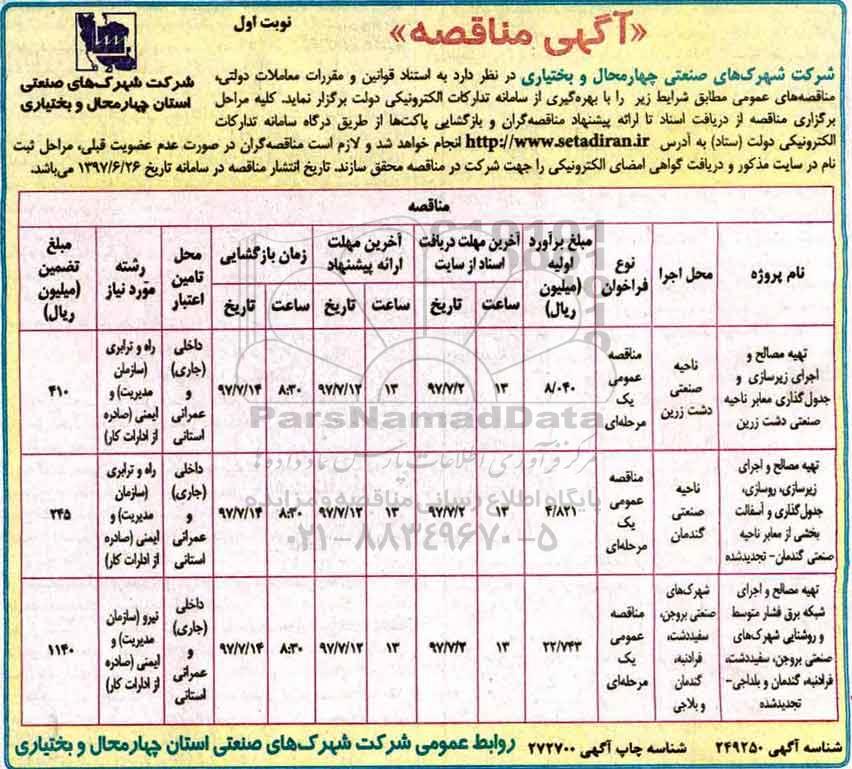 «آگهی مناقصه»
نوبت اول
شرکت شهرک‌های صنعتی
استان چهارمحال و بختیاری
شرکت شهرک‌های صنعتی چهارمحال و بختیاری در نظر دارد به استناد قوانین و مقررات معاملات دولتی،
مناقصه‌های عمومی مطابق شرایط زیر را با بهره‌گیری از سامانه تدارکات الکترونیکی دولت برگزار نماید. کلیه مراحل
برگزاری مناقصه از دریافت اسناد تا ارائه پیشنهاد مناقصه‌گران و بازگشایی پاکت‌ها از طریق درگاه سامانه تدارکات
الکترونیکی دولت (ستاد) به آدرس http://www.setadiran.ir انجام خواهد شد و لازم است مناقصه‌گران در صورت عدم عضویت قبلی، مراحل ثبت
نام در سایت مذکور و دریافت گواهی امضای الکترونیکی را جهت شرکت در مناقصه محقق سازند. تاریخ انتشار مناقصه در سامانه تاریخ ۱۳۹۷/۶/۲۶ می‌باشد.
مناقصه
نام پروژه
محل اجرا
نوع
فراخوان
مبلغ برآورد
اولیه
(میلیون
ریال)
آخرین مهلت دریافت
اسناد از سایت
ساعت تاریخ
آخرین مهلت
ارائه پیشنهاد
ساعت تاریخ
زمان بازگشایی
ساعت تاریخ
محل
تامین
اعتبار
رشته
مورد نیاز
مبلغ
تضمین
(میلیون
ریال)
تهیه مصالح و
اجرای زیرسازی و
جدول‌گذاری معابر ناحیه
صنعتی دشت زرین
ناحیه
صنعتی
دشت زرین
مناقصه
عمومی
یک
مرحله‌ای
۸/۰۴۰
۱۳
۹۷/۷/۲
۱۳
۹۷/۷/۱۲
۸:۳۰
۹۷/۷/۱۴
داخلی
(جاری)
و
عمرانی
استانی
راه و ترابری
(سازمان
مدیریت) و
ایمنی (صادره
از ادارات کار)
۴۱۰
تهیه مصالح و اجرای
زیرسازی، روسازی،
جدول‌گذاری و آسفالت
بخشی از معابر ناحیه
صنعتی گندمان- تجدیدشده
ناحیه
صنعتی
گندمان
مناقصه
عمومی
یک
مرحله‌ای
۴/۸۲۱
۱۳
۹۷/۷/۲
۱۳
۹۷/۷/۱۲
۸:۳۰
۹۷/۷/۱۴
داخلی
(جاری)
و
عمرانی
استانی
راه و ترابری
(سازمان
مدیریت) و
ایمنی (صادره
از ادارات کار)
۲۴۵
تهیه مصالح و اجرای
شبکه برق فشار متوسط
و روشنایی شهرک‌های
صنعتی بروجن، سفیددشت،
فرادنبه، گندمان و بلداجی-
تجدیدشده
شهرک‌های
صنعتی بروجن،
سفیددشت،
فرادنبه،
گندمان
و بلاجی
مناقصه
عمومی
یک
مرحله‌ای
۲۲/۷۴۳
۱۳
۹۷/۷/۲
۱۳
۹۷/۷/۱۲
۸:۳۰
۹۷/۷/۱۴
داخلی
(جاری)
و
عمرانی
استانی
نیرو (سازمان
مدیریت) و
ایمنی (صادره
از ادارات کار)
۱۱۴۰
ParsNamadData
مرکز فرآوری اطلاعات پارس نماد داده‌ها
پایگاه اطلاع رسانی مناقصه و مزایده
۰۲۱-۸۸۳۴۹۶۷۰-۵
شناسه آگهی ۲۴۹۲۵۰ شناسه چاپ آگهی ۲۷۲۷۰۰ روابط عمومی شرکت شهرک‌های صنعتی استان چهارمحال و بختیاری